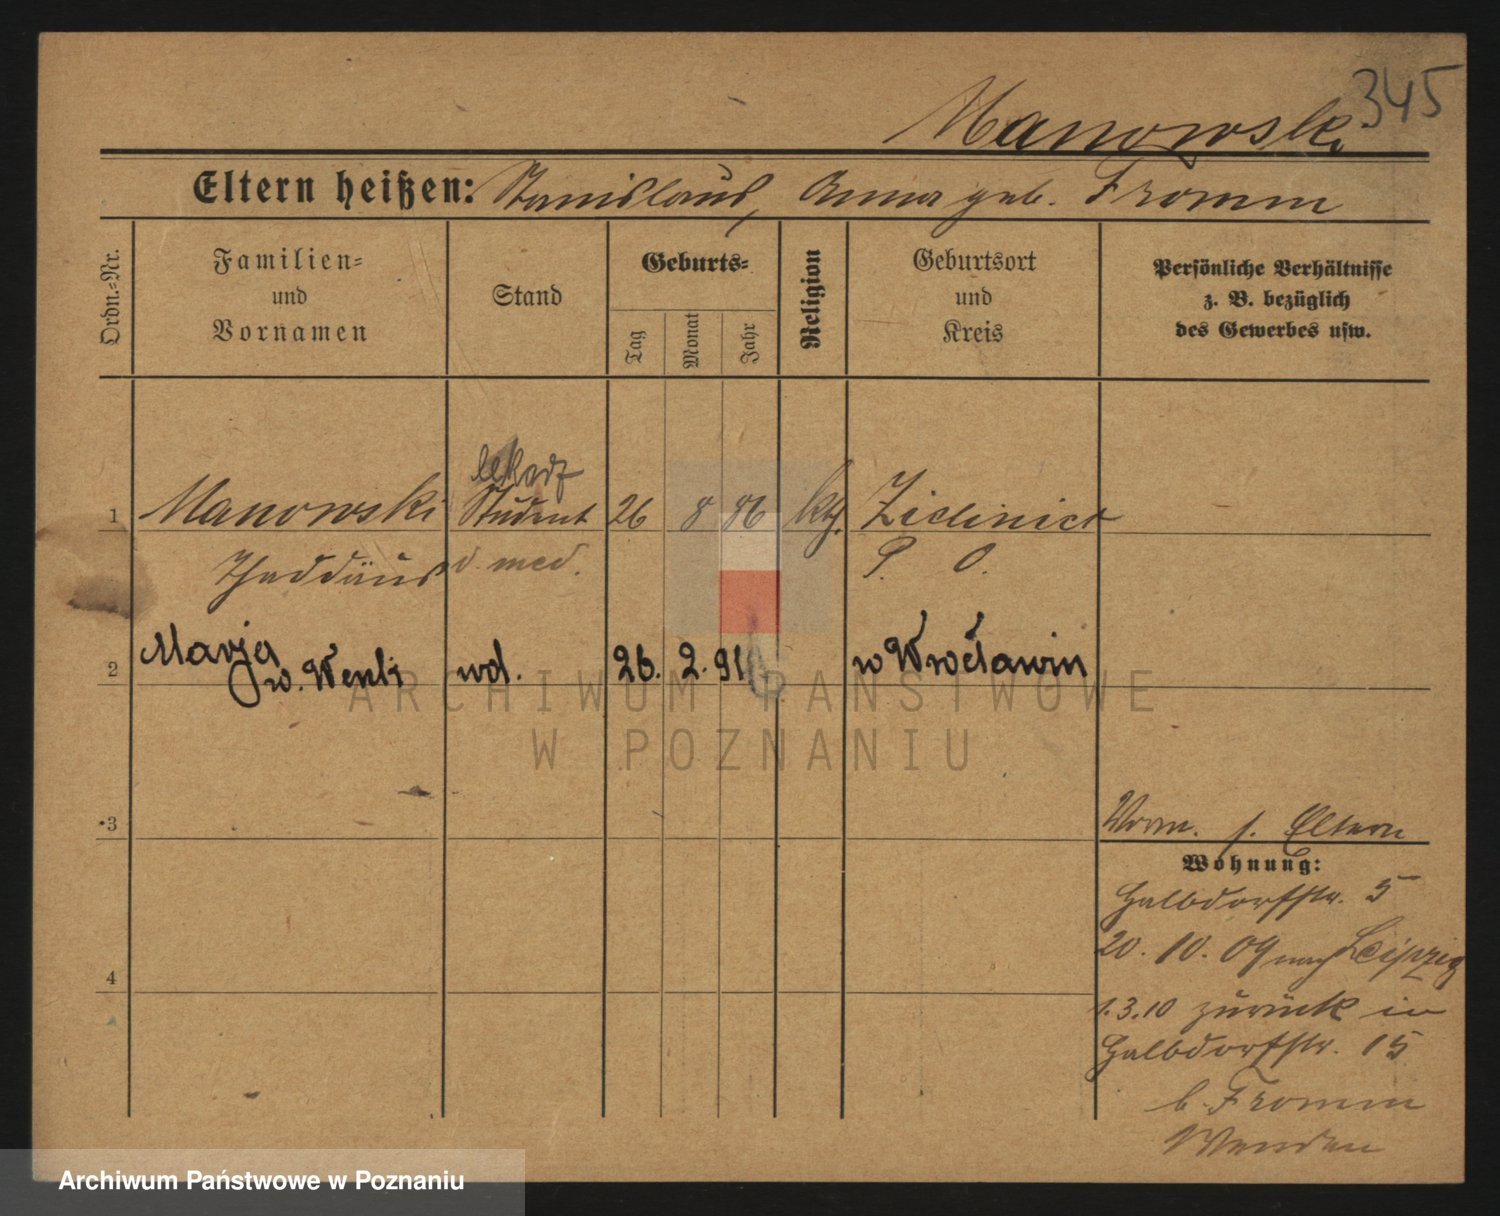 345
Manowski
Eltern heißen: Stanislaus, Anna geb. Fromm
Ordn.-Nr.
Familien-
und
Vornamen
Stand
Geburts-
Tag
Monat
Jahr
Religion
Geburtsort
und
Kreis
Persönliche Verhältnisse
z. B. bezüglich
des Gewerbes usw.
lekarz
1 Manowski Student 26 8 86 kth.
Thaddäus d. med. P. O.
Marja
2 w. wd. 26. 2. 91 w Wrocławiu
3
Vorm. s. Eltern
Wohnung:
Halbdorfstr. 5
20. 10. 09 nach Leipzig
4
1.3.10 zurück in
Halbdorfstr. 15
b. Fromm
ARCHIWUM PAŃSTWOWE
W POZNANIU
Archiwum Państwowe w Poznaniu